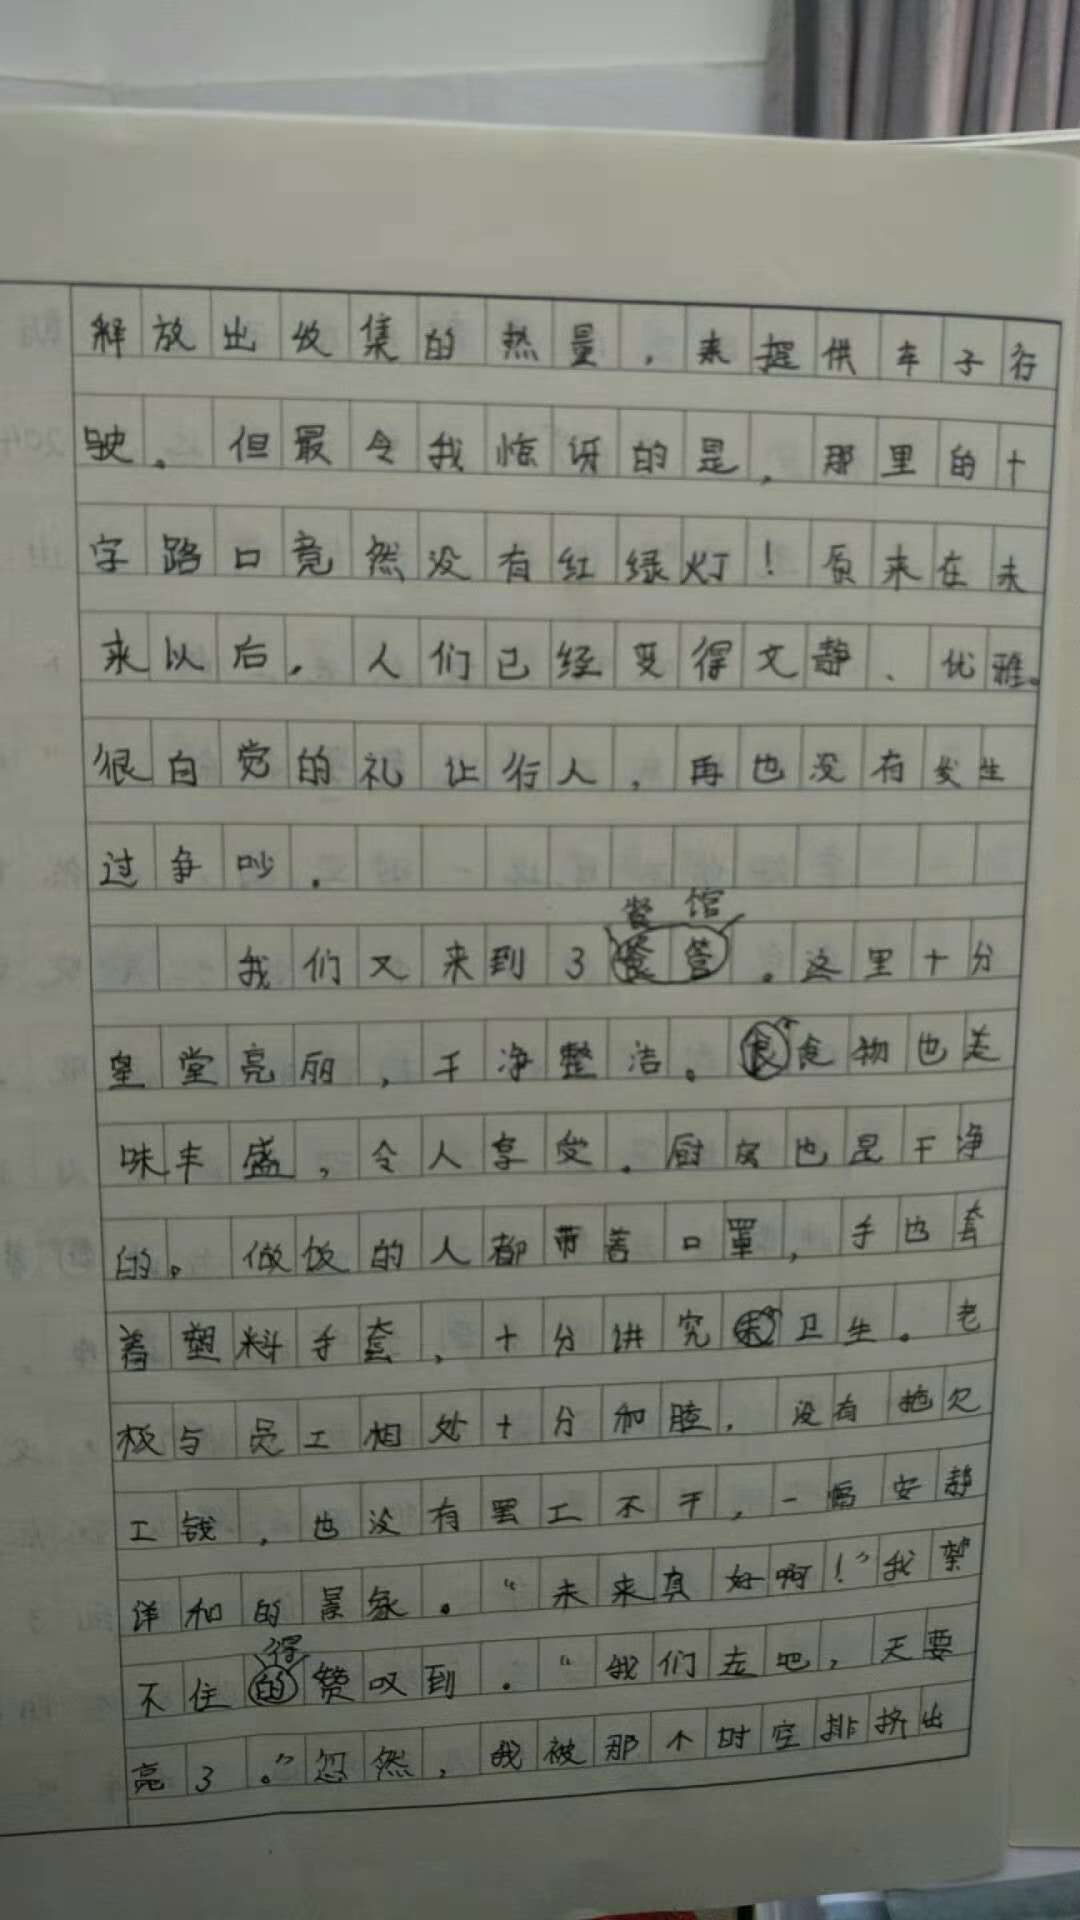 释放出收集的热量，来提供车子行
驶。但最令我惊讶的是，那里的十
字路口竟然没有红绿灯！原来在未
来以后，人们已经变得文静、优雅。
很自觉的礼让行人，再也没有发生
过争吵。
餐馆
我们又来到了餐管。这里十分
皇堂亮丽，干净整洁。食食物也美
味丰盛，令人享受。厨房也是干净
的。做饭的人都带着口罩，手也套
着塑料手套，十分讲究卫生。老
板与员工相处十分和睦，没有拖欠
工钱，也没有罢工不干，一幅安静
详和的景象。“未来真好啊！”我禁
得
不住的赞叹到。“我们走吧，天要
亮了。”忽然，我被那个时空排挤出